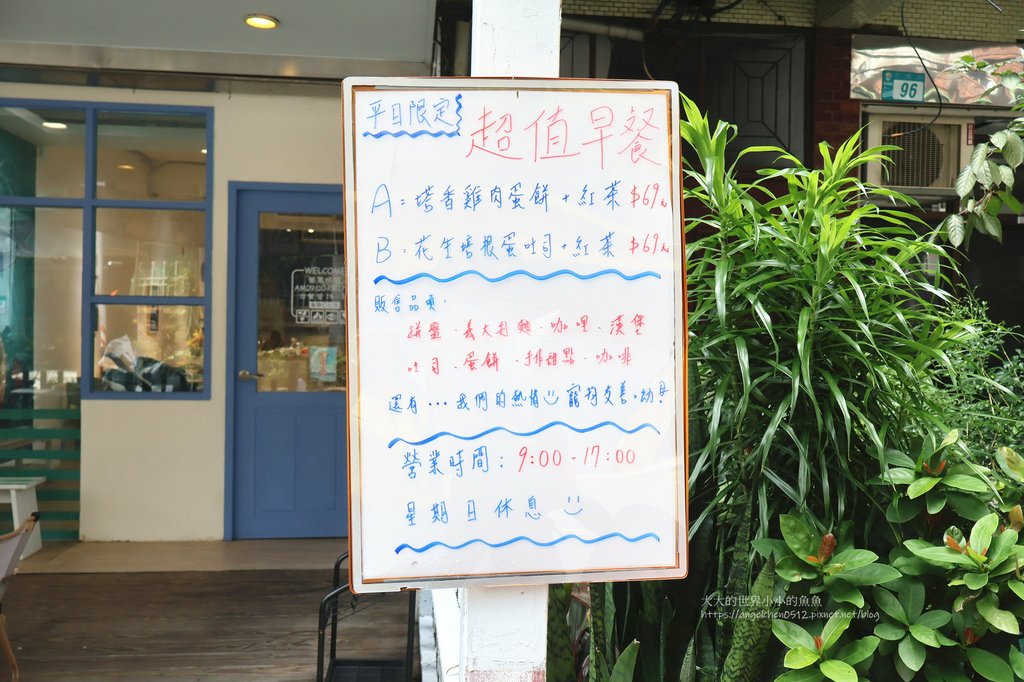 平日限定
超值早餐
A：塔香雞肉蛋餅+紅茶 $69元
B：花生培根蛋吐司+紅茶 $69元
販售品項：
拼盤、義大利麵、咖哩、漢堡
吐司、蛋餅、手作甜點、咖啡
還有...我們的熱情 寵物友善、幼兒
營業時間：9:00-17:00
星期日休息
WELCOME
96
大大的世界小小的魚魚
https://angelchen0512.pixnet.net/blog